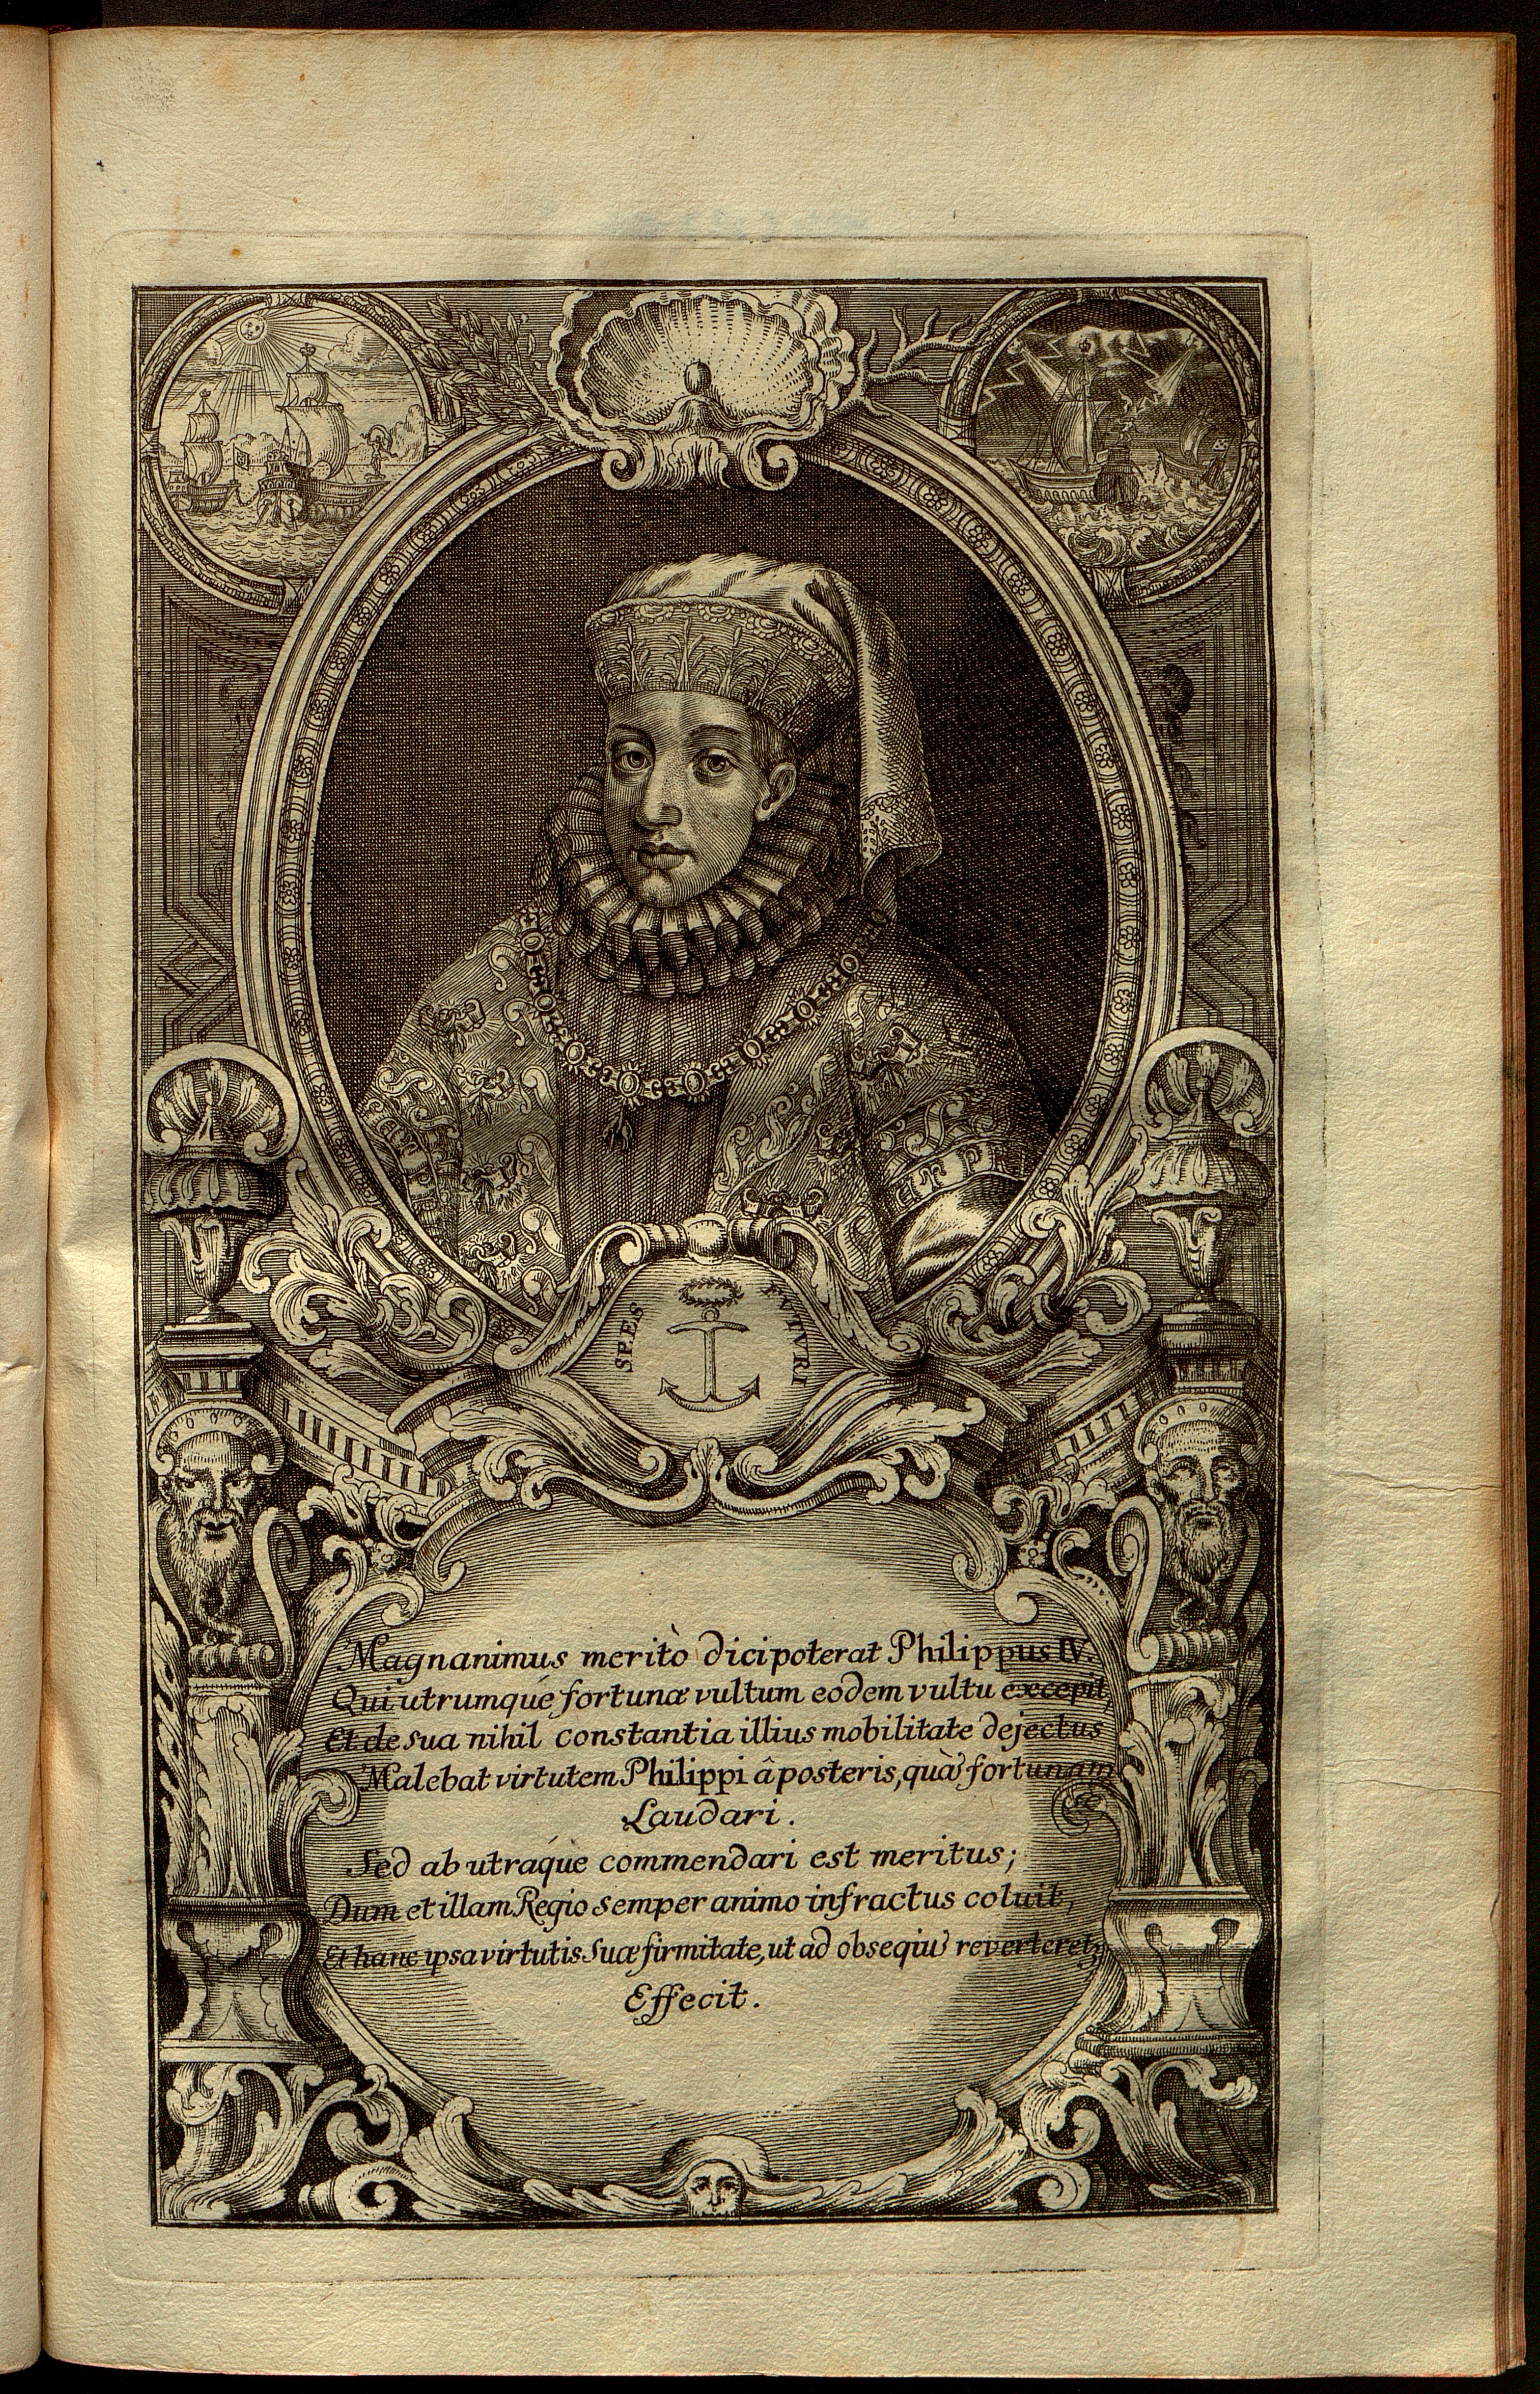 SPES FVTVRI
Magnanimus meritò dici poterat Philippus IV.
Qui utrumque fortunæ vultum eodem vultu excepit,
Et de sua nihil constantia illius mobilitate dejectus
Malebat virtutem Philippi â posteris, quà fortunam
Laudari.
Sed ab utraque commendari est meritus;
Dum et illam Regio semper animo infractus coluit,
Et hanc ipsa virtutis suæ firmitate, ut ad obseqiũ reverteret,
Effecit.